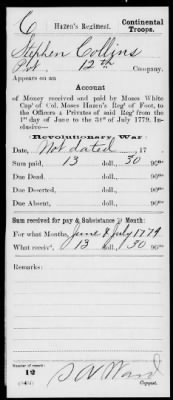 C | Hazen's Regiment. | Continental Troops.
Stephen Collins
Pvt. 12th Company.
Appears on an
Account
of Money received and paid by Moses White
Cap't of Col. Moses Hazen's Reg't of Foot, to
the Officers & Privates of said Reg't from the
1st day of June to the 31st of July 1779. In-
clusive—
Revolutionary War:
Date, Not dated, 17
Sum paid, 13 doll. 30 90ths
Due Dead, doll. 90ths
Due Deserted, doll. 90ths
Due Absent, doll. 90ths
Sum received for pay & Subsistance ⅌ Month:
For what Months, June & July 1779
What receiv'd, 13 doll. 30 90ths
Remarks:
Number of record:
12
Copyist.